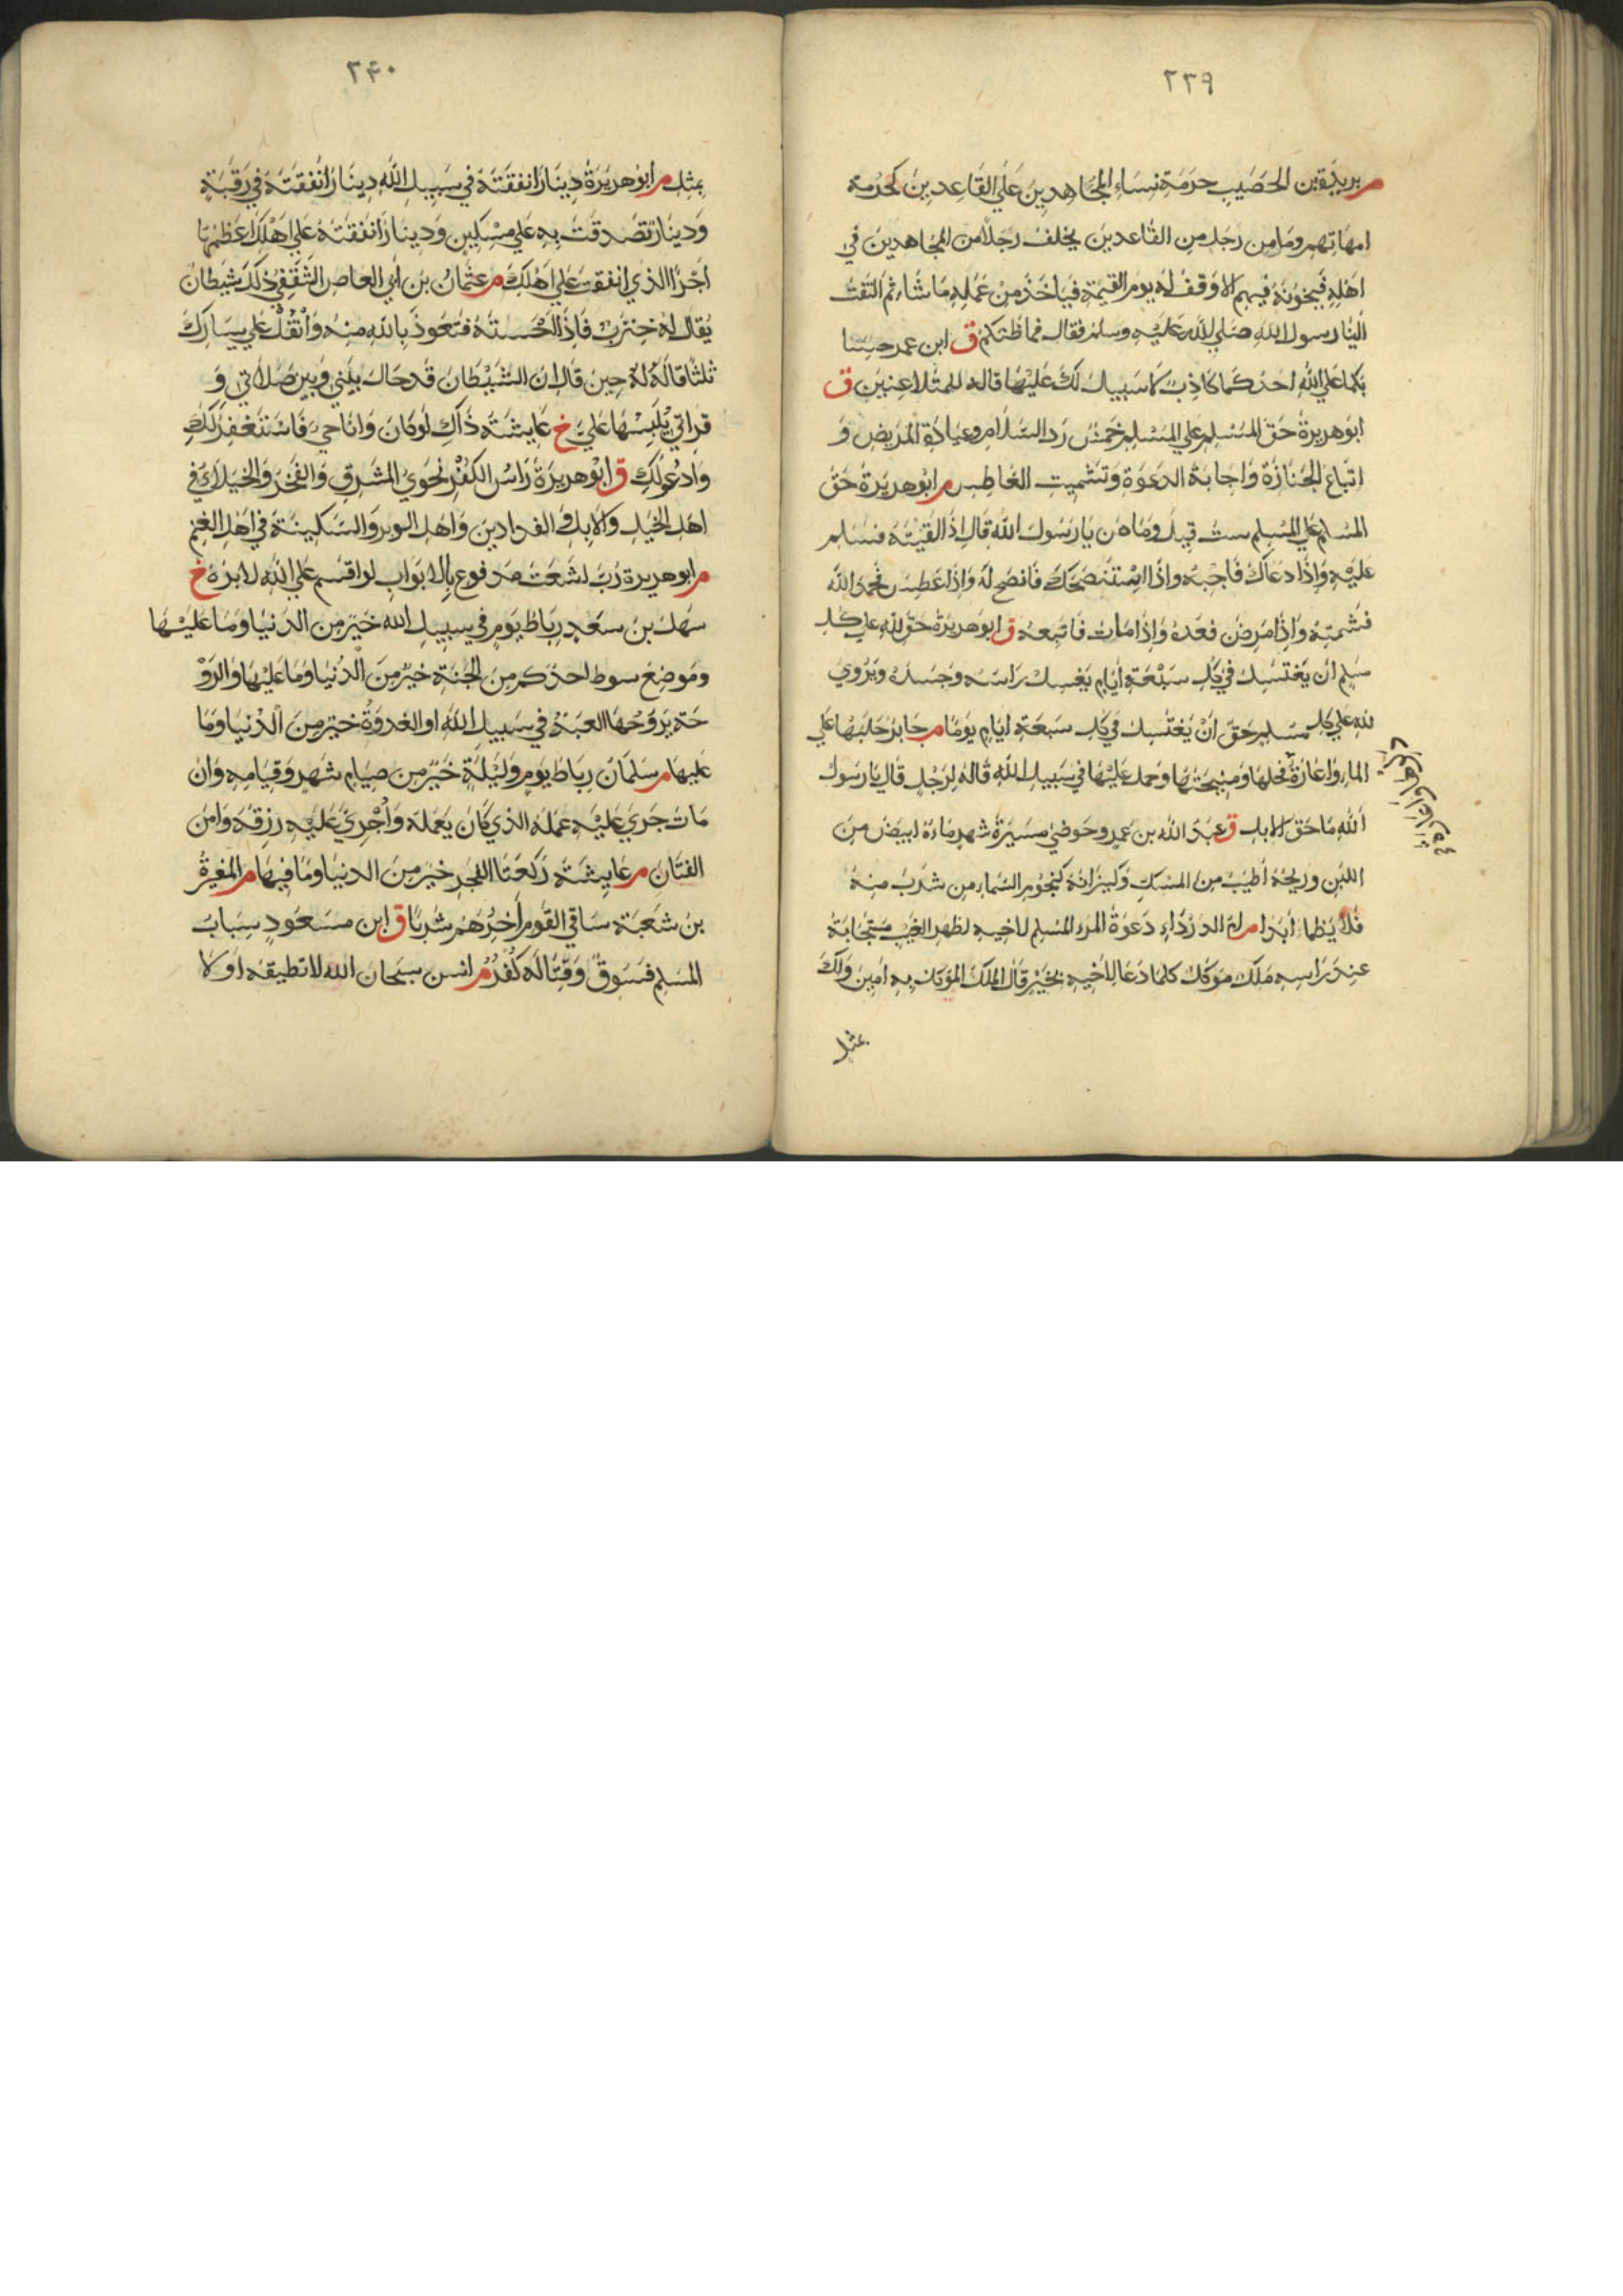 ٢٣٩
م بريدة بن الحصيب حرمة نساء المجاهدين علي القاعدين كحرمة
امهاتهم وما من رجل من القاعدين يخلف رجلا من المجاهدين في
اهله فيخونه فيهم الا وقف له يوم القيمة فياخذ من عمله ما شاء ثم التفت
الينا رسول الله صلي الله عليه وسلم فقال فما ظنكم ق ابن عمر حسا
بكما علي الله احدكما كاذب لا سبيل لك عليها قاله للمتلاعنين ق
ابو هريرة حق المسلم علي المسلم خمس رد السلام وعيادة المريض و
اتباع الجنازة واجابة الدعوة وتشميت العاطس م ابو هريرة حق
المسلم علي المسلم ست قيل وما هن يا رسول الله قال اذا لقيته فسلم
عليه واذا دعاك فاجبه واذا استنصحك فانصح له واذا عطس فحمد الله
فشمته واذا مرض فعده واذا مات فاتبعه ق ابو هريرة حق لله علي كل
مسلم ان يغتسل في كل سبعة ايام يغسل راسه وجسده ويروي
لله علي كل مسلم حق ان يغتسل في كل سبعة ايام يوما م جابر حلبها علي
الماء واعارة فحلها ومنيحتها وحمل عليها في سبيل الله قاله لرجل قال يا رسول
الله ما حق الابل ق عبد الله بن عمرو حوضي مسيرة شهر ماءه ابيض من
اللبن وريحه اطيب من المسك وكيزانه كنجوم السماء من شرب منه
فلا يظما ابدا م ام الدرداء دعوة المرء المسلم لاخيه لظهر الغيب مستجابة
عند راسه ملك موكل كلما دعا لاخيه بخير قال الملك الموكل به امين ولك
بمثل
٢٤٠
بمثل م ابو هريرة دينار انفقته في سبيل الله دينار انفقته في رقبة
ودينار تصدقت به علي مسكين ودينار انفقته علي اهلك اعظمها
اجرا الذي انفقت علي اهلك م عثمان بن ابي العاص الثقفي ذلك شيطان
يقال له خنزب فاذا احسسته فتعوذ بالله منه واتفل علي يسارك
ثلثا قاله له حين قال ان الشيطان قد حال بيني وبين صلاتي و
قراتي يلبسها علي خ عايشة ذاك لو كان وانا حي فاستغفر لك
وادعو لك ق ابو هريرة راس الكفر نحو المشرق والفخر والخيلاء في
اهل الخيل والابل و الفدادين واهل الوبر والسكينة في اهل الغنم
م ابو هريرة رب اشعث مدفوع بالابواب لو اقسم علي الله لابره خ
سهل بن سعد رباط يوم في سبيل الله خير من الدنيا وما عليها
وموضع سوط احدكم من الجنة خير من الدنيا وما عليها والرو
حة يروحها العبد في سبيل الله او الغدوة خير من الدنيا وما
عليها م سلمان رباط يوم وليلة خير من صيام شهر وقيامه وان
مات جري عليه عمله الذي كان يعمله واجري عليه رزقه وامن
الفتان م عايشة ركعتا الفجر خير من الدنيا وما فيها م المغيرة
بن شعبة ساقي القوم اخرهم شربا ق ابن مسعود سباب
المسلم فسوق وقتاله كفر م انس سبحان الله لا تطيقه او لا